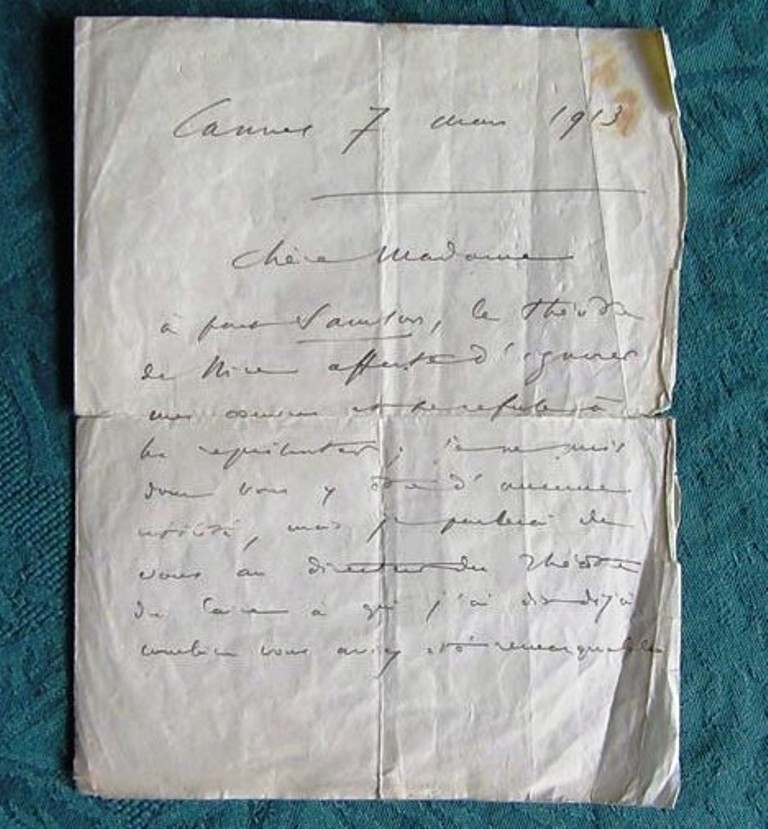 Cannes 7 mars 1913
Chère Madame
à part Samson, le Théâtre
de Nice affecte d'ignorer
mes œuvres et se refuse à
les représenter ; je ne puis
donc vous y être d'aucune
utilité, mais je parlerai de
vous au directeur du Théâtre
du Caire à qui j'ai dit déjà
combien vous aviez été remarquable